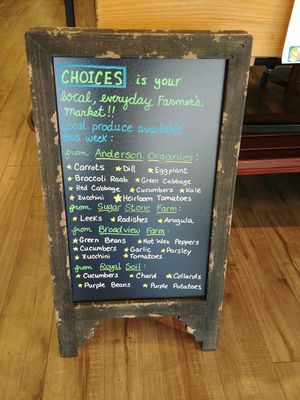 CHOICES is your
local, everyday Farmer's
market!!
Local produce available
this week:
from Anderson Organics:
Carrots Dill Eggplant
Broccoli Raab Green Cabbage
Red Cabbage Cucumbers Kale
Zucchini Heirloom Tomatoes
from Sugar Stone Farm:
Leeks Radishes Arugula
from Broadview Farm:
Green Beans Hot Wax Peppers
Cucumbers Garlic Parsley
Zucchini Tomatoes
from Royal Soil:
Cucumbers Chard Collards
Purple Beans Purple Potatoes